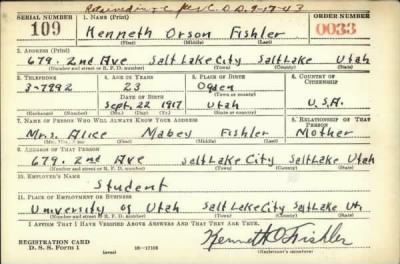 D.D. 9-17-43
SERIAL NUMBER 1. NAME (Print) ORDER NUMBER
109 Kenneth Orson Fishler 0033
(First) (Middle) (Last)
2. ADDRESS (Print)
679. 2nd Ave Salt Lake City Salt Lake Utah
(Number and street or R. F. D. number) (Town) (County) (State)
3. TELEPHONE 4. AGE IN YEARS 5. PLACE OF BIRTH 6. COUNTRY OF CITIZENSHIP
3-7992 23 Ogden
DATE OF BIRTH (Town or county)
Sept. 22 1917 Utah U.S.A.
(Exchange) (Number) (Mo.) (Day) (Yr.) (State or country)
7. NAME OF PERSON WHO WILL ALWAYS KNOW YOUR ADDRESS 8. RELATIONSHIP OF THAT PERSON
Mrs. Alice Mabey Fishler Mother
(First) (Middle) (Last)
9. ADDRESS OF THAT PERSON
679. 2nd Ave Salt Lake City Salt Lake Utah
(Number and street or R. F. D. number) (Town) (County) (State)
10. EMPLOYER'S NAME
Student
11. PLACE OF EMPLOYMENT OR BUSINESS
University of Utah Salt Lake City Salt Lake Ut
(Number and street or R. F. D. number) (Town) (County) (State)
I AFFIRM THAT I HAVE VERIFIED ABOVE ANSWERS AND THAT THEY ARE TRUE.
REGISTRATION CARD
D. S. S. Form 1 (over) Kenneth O Fishler
(Registrant's signature)